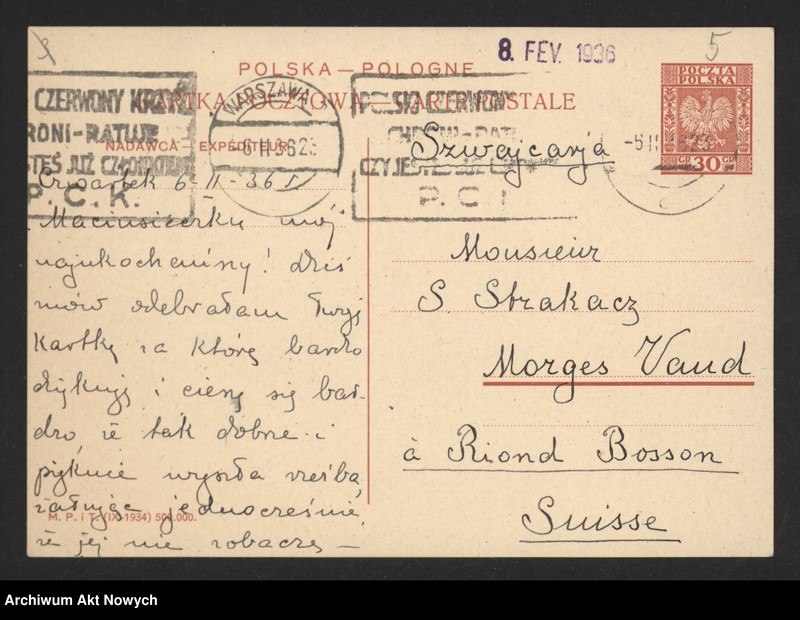 8. FEV. 1936
5
POLSKA — POLOGNE
KARTKA POCZTOWA — CARTE POSTALE
POCZTA
POLSKA
GR 30 GR
CZERWONY KRZYŻ
RONI - RATUJE
STEŚ JUŻ CZŁONKIEM
P. C. K.
WARSZAWA
-6 II 36 23
POLSKI CZERWONY
CHRONI - RATU
CZY JESTEŚ JUŻ
P. C.
-6 II 36 23
NADAWCA — EXPÉDITEUR
Czwartek 6-II-36 r.
Maciusieczku mój
najukochańszy! Dziś
znów odebrałam Twoją
kartkę za którą bardzo
dziękuję i cieszę się bar-
dzo, że tak dobrze i
pięknie wyszła rzeźba,
żałując jednocześnie,
że jej nie zobaczę —
M. P. i T. (IX-1934) 500.000.
Szwajcarja
Monsieur
S. Strakacz
Morges Vaud
à Riond Bosson
Suisse
Archiwum Akt Nowych